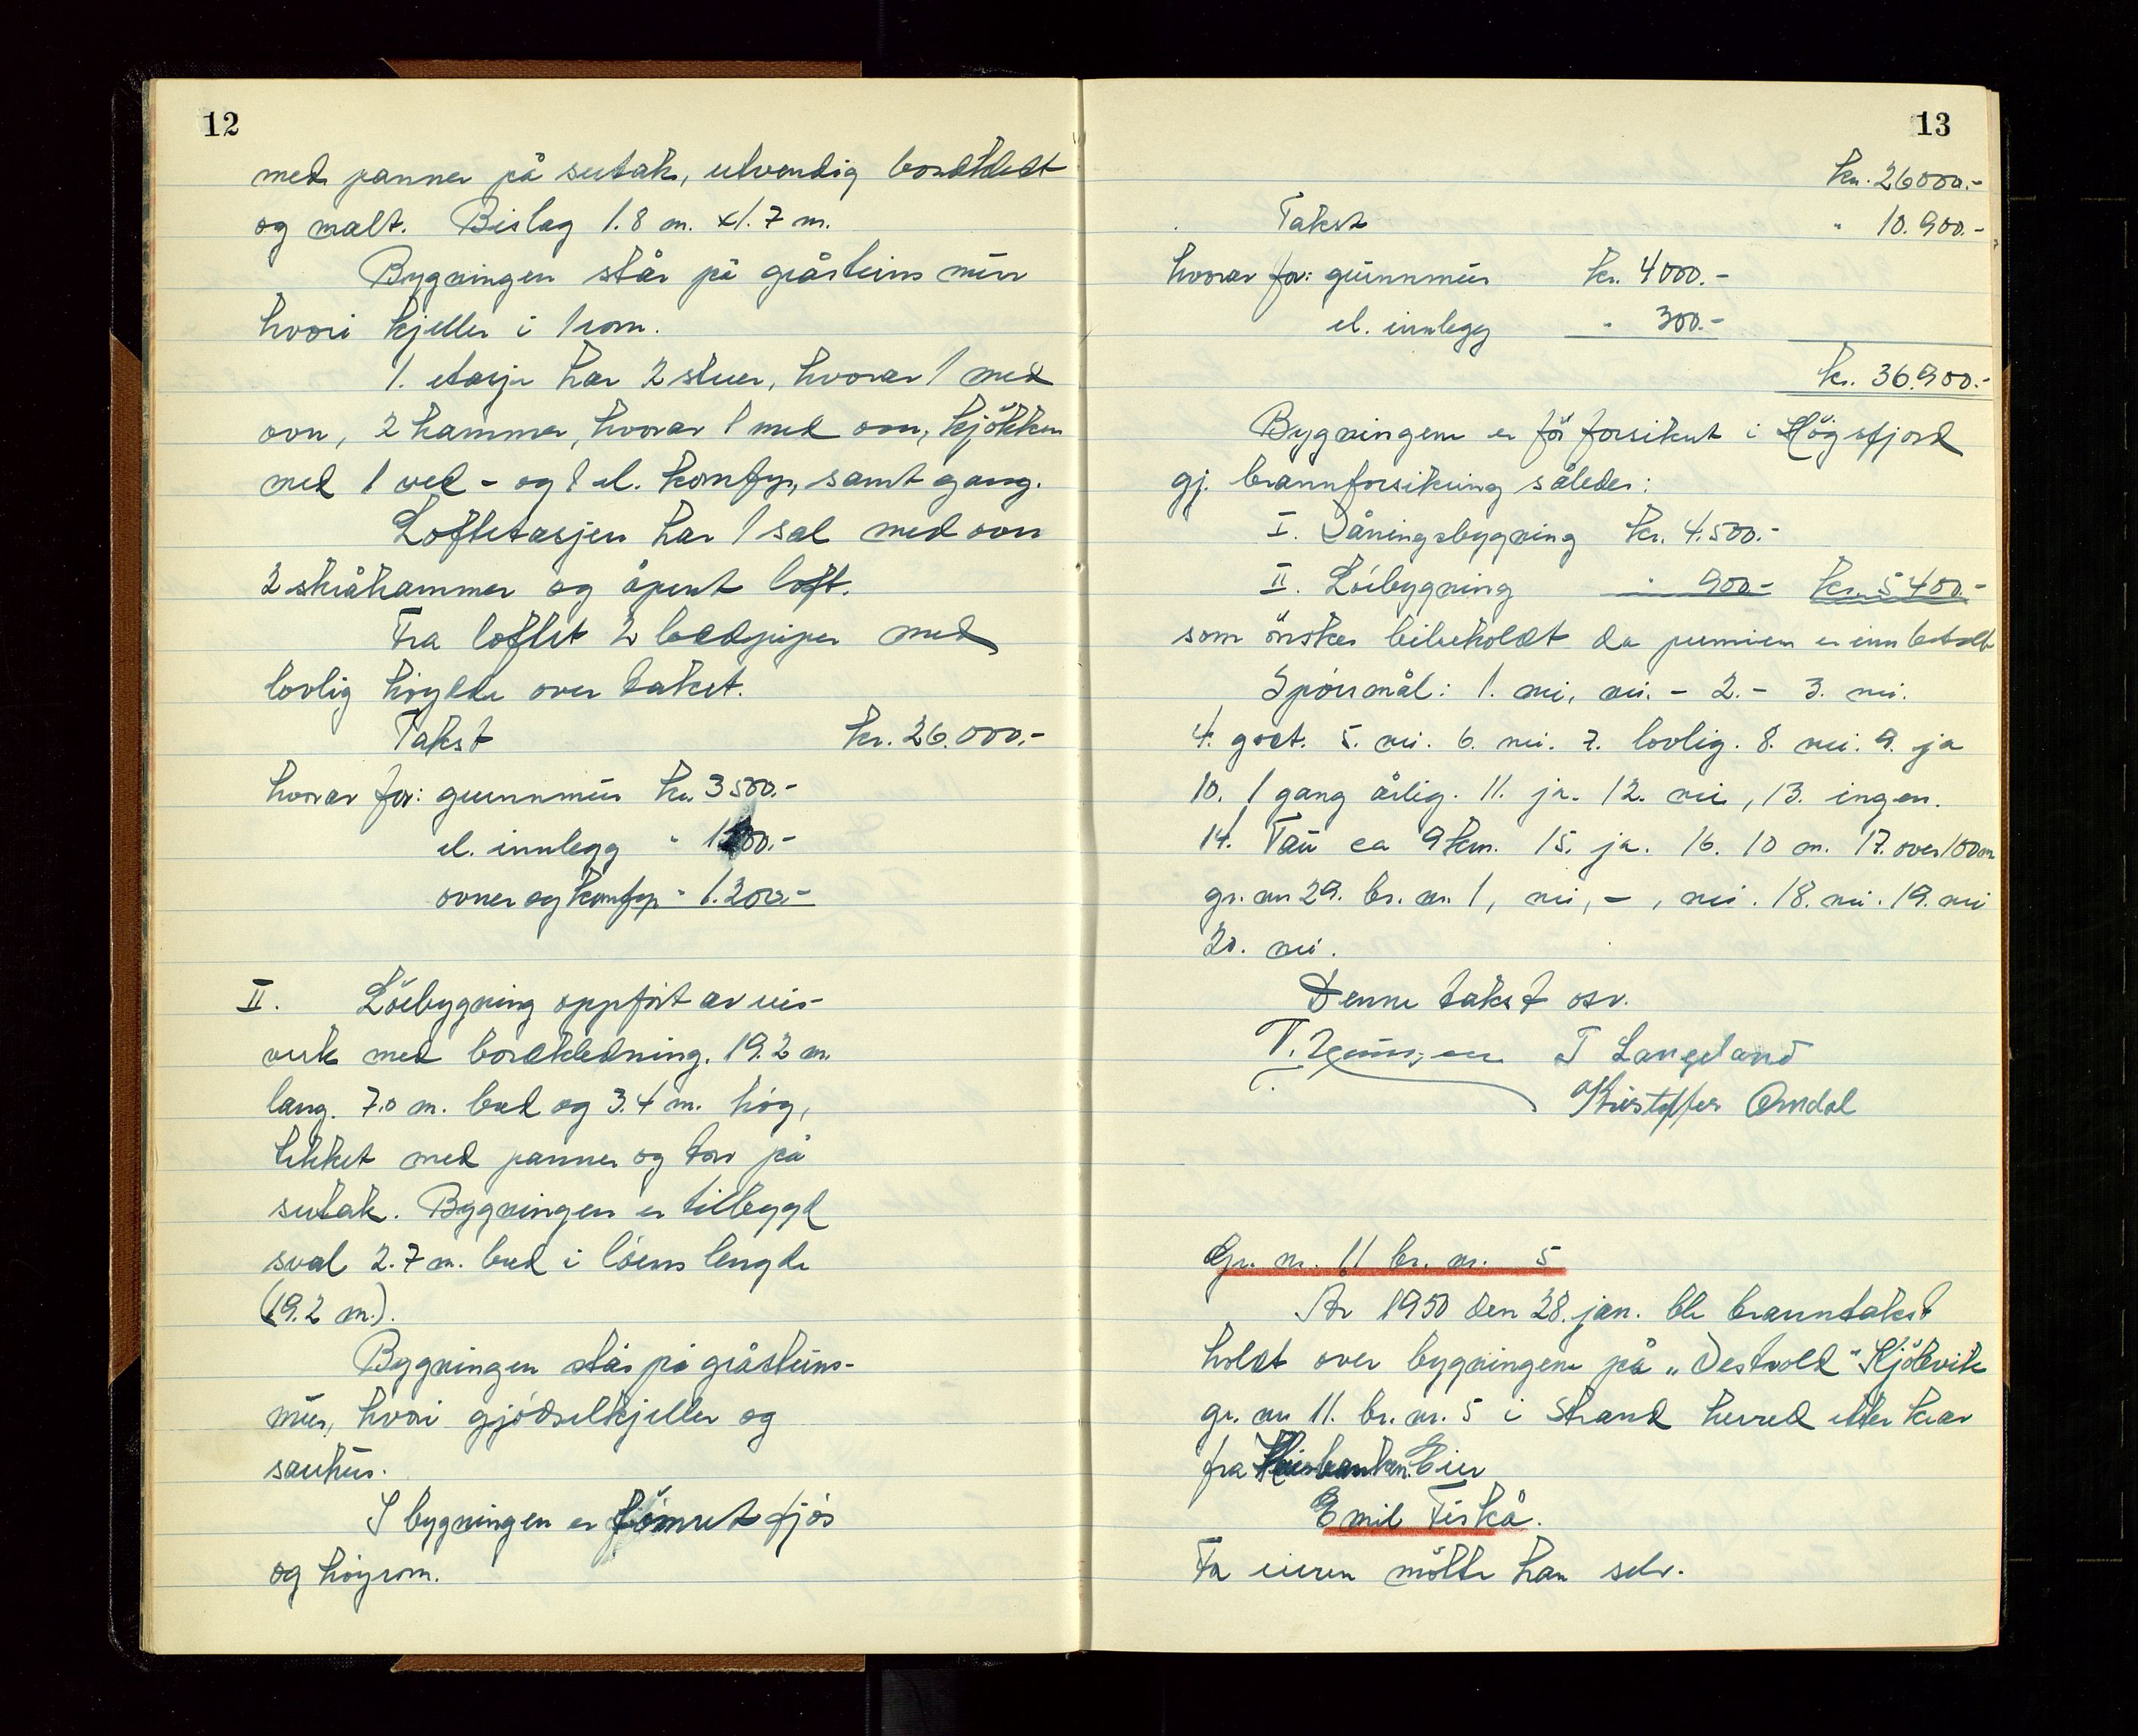 12
med panner på sutak, utvendig bordkledt
og malt. Bislag 1.8 m. x 1.7 m.
Bygningen står på gråsteins mur
hvori kjeller i 1 rom.
1. etasje har 2 stuer, hvorav 1 med
ovn, 2 kammer, hvorav 1 med ovn, kjøkken
med 1 ved - og 1 el. komfyr, samt gang.
Loftetasjen har 1 sal med ovn
2 skråkammer og åpent loft.
Fra loftet 2 ledpiper med
lovlig høyde over taket.
Takst kr. 26.000.-
hvorav for: grunnmur kr. 3500.-
el. innlegg " 00.-
ovner og komfyr " 1.200.-
II. Löebygning oppført av reis-
verk med bordkledning. 19.2 m.
lang. 7.0 m. bred og 3.4 m. høg,
tekket med panner og torv på
sutak. Bygningen er tilbygd
sval 2.7 m. bred i löens lengde
(19.2 m.).
Bygningen står på gråsteins-
mur, hvori gjødselkjeller og
sauhus.
I bygningen er fjös
og høyrom.
13
kr. 26000.-
Takst " 10.900.-
hvorav for: grunnmur kr. 4000.-
el. innlegg " 300.-
kr. 36.900.-
Bygningene er før forsikret i Högsfjord
gj. brannforsikring således:
I. Våningsbygning kr. 4.500.-
II. Löebygning " 900.- kr. 5400.-
som ønskes bibeholdt da premien er inn betalt
Spørsmål: 1. nei, nei. - 2. - 3. nei.
4. godt. 5. nei. 6. nei. 7. lovlig. 8. nei. 9. ja
10. 1 gang årlig. 11. ja. 12. nei, 13. ingen.
14. Tau ca 9 km. 15. ja. 16. 10 m. 17. over 100 m
gr. nr 29. br. nr. 1, nei, - , nei. 18. nei. 19. nei
20. nei.
Denne takst osv.
T. T Langeland
Kristoffer Omdal
Gr. nr. 11 br. nr. 5
År 1950 den 28. jan. ble branntakst
holdt over bygningene på "Vestvold" Kjölevik
gr. nr 11. br. nr. 5 i Strand herred etter krav
fra Husbanken. Eier
Emil Fiskå.
For eieren mötte han selv.